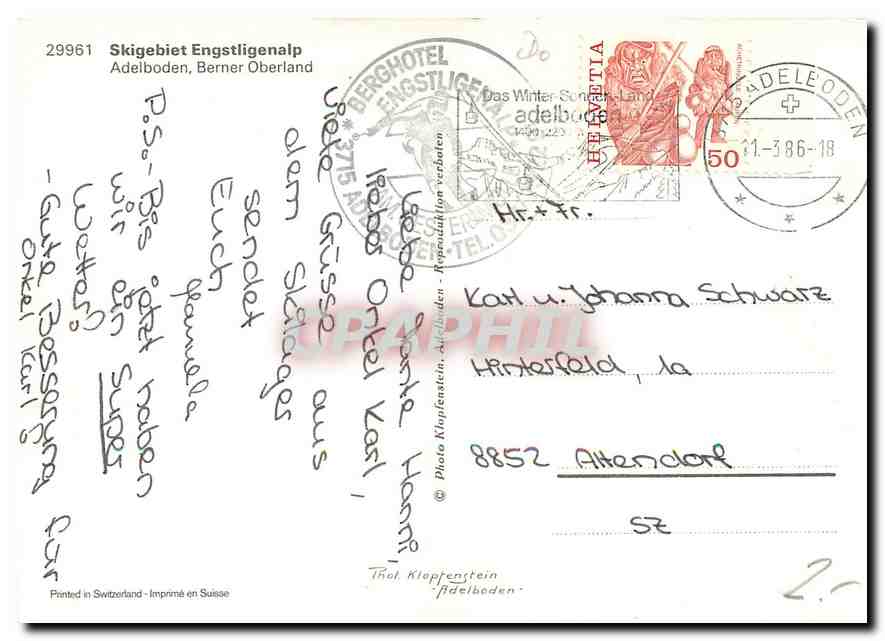 29961 Skigebiet Engstligenalp
Adelboden, Berner Oberland
BERGHOTEL
ENGSTLIGENALP
* 3715 ADELBODEN · TEL. 0
Das Winter-Sonnen-Land
adelboden
1400-2
HELVETIA
50
3715 ADELBODEN
11.-3.86-18
Liebe Tante Hanni,
liebes Onkel Karl,
viele Grüsse aus
dem Skilager
sendet
Euch
Manuela
P.S.- Bis jetzt haben
wir ein Super
Wetter!
- Gute Besserung für
Onkel Karl!
© Photo Klopfenstein, Adelboden - Reproduktion verboten
Hr. + Fr.
Karl u. Johanna Schwarz
Hinterfeld, 1a
8852 Altendorf
SZ
Phot. Klopfenstein
-Adelboden-
Printed in Switzerland - Imprimé en Suisse
2.-
CPAPHIL